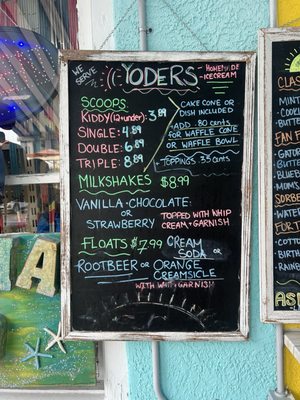 WE SERVE YODERS HOMEMADE ICECREAM
SCOOPS:
KIDDY (12+under): 3.89
SINGLE: 4.89
DOUBLE: 6.89
TRIPLE: 8.89
CAKE CONE OR
DISH INCLUDED
ADD .80 cents
FOR WAFFLE CONE
OR WAFFLE BOWL
TOPPINGS .35 cents
MILKSHAKES $8.99
VANILLA-CHOCOLATE:
OR
STRAWBERRY
TOPPED WITH WHIP
CREAM + GARNISH
FLOATS $7.99 CREAM
SODA OR
ROOTBEER OR ORANGE
CREAMSICLE
WITH WHIP + GARNISH
CLAS
MINT
COOK
BUTT
FAN F
GATOR
BUTTE
BLUEB
MAM
SORBE
WATER
FORT
COTTO
BIRTH
RAINB
ASK